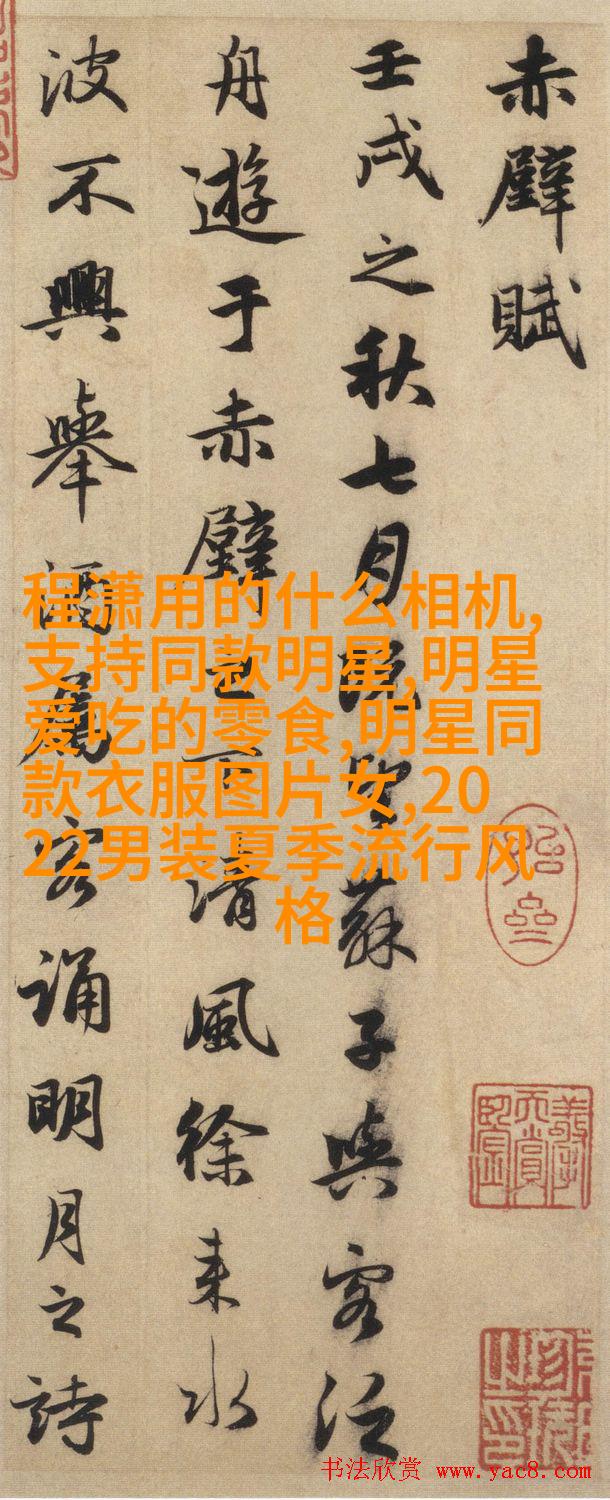 赤壁賦
壬戌之秋七月既望蘇子與客泛
舟遊于赤壁之下清風徐来水
波不興舉酒屬客誦明月之詩
程潇用的什么相机,
支持同款明星,明星
爱吃的零食,明星同
款衣服图片女,20
22男装夏季流行风
格
书法欣赏 www.yac8.com